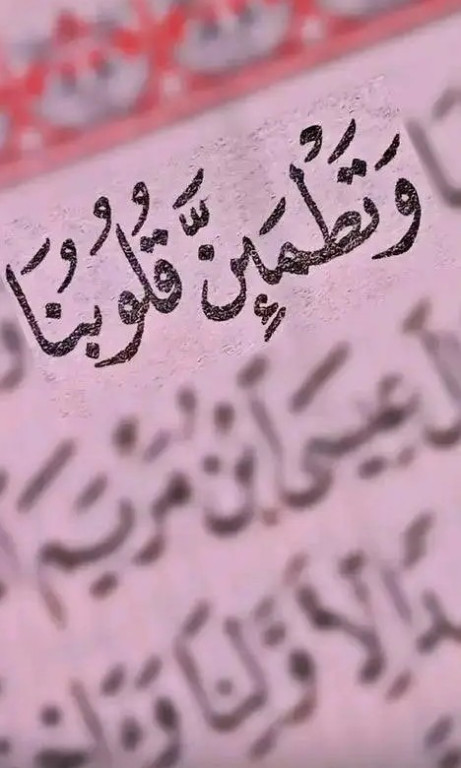 وَتَطْمَئِنَّ قُلُوبُنَا
عِيسَى ٱبْنُ مَرْيَمَ
لِّأَوَّلِنَا